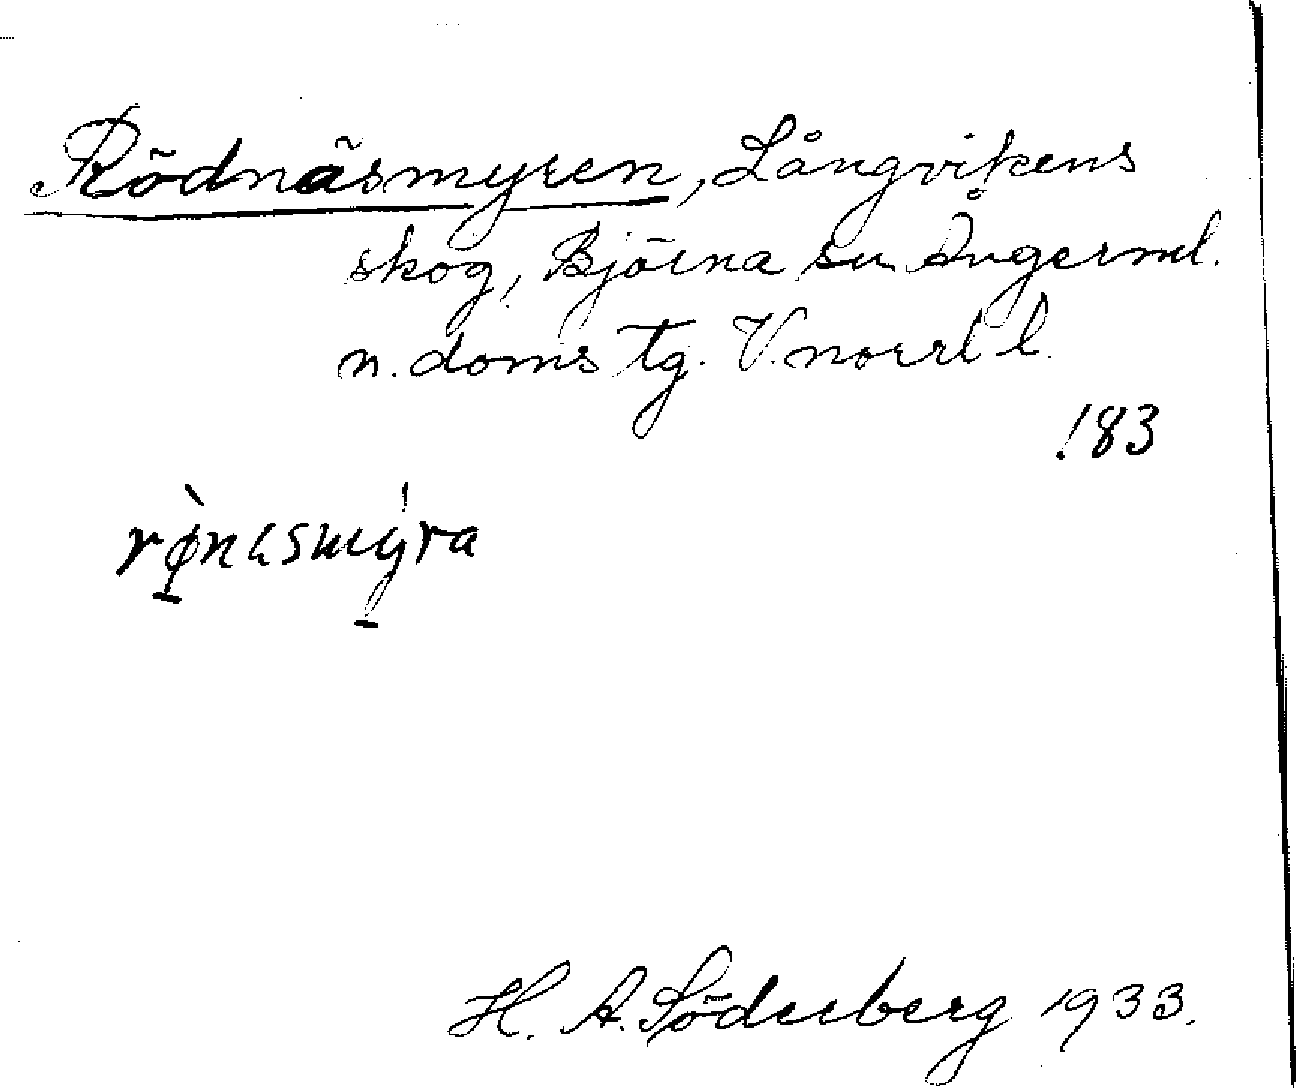 Rödnäsmyren, Långvikens
skog, Björna sn Ångerml.
n. doms tg. V. norrl l.
! 83
rø̀næsmýra
H. A. Söderberg 1933.